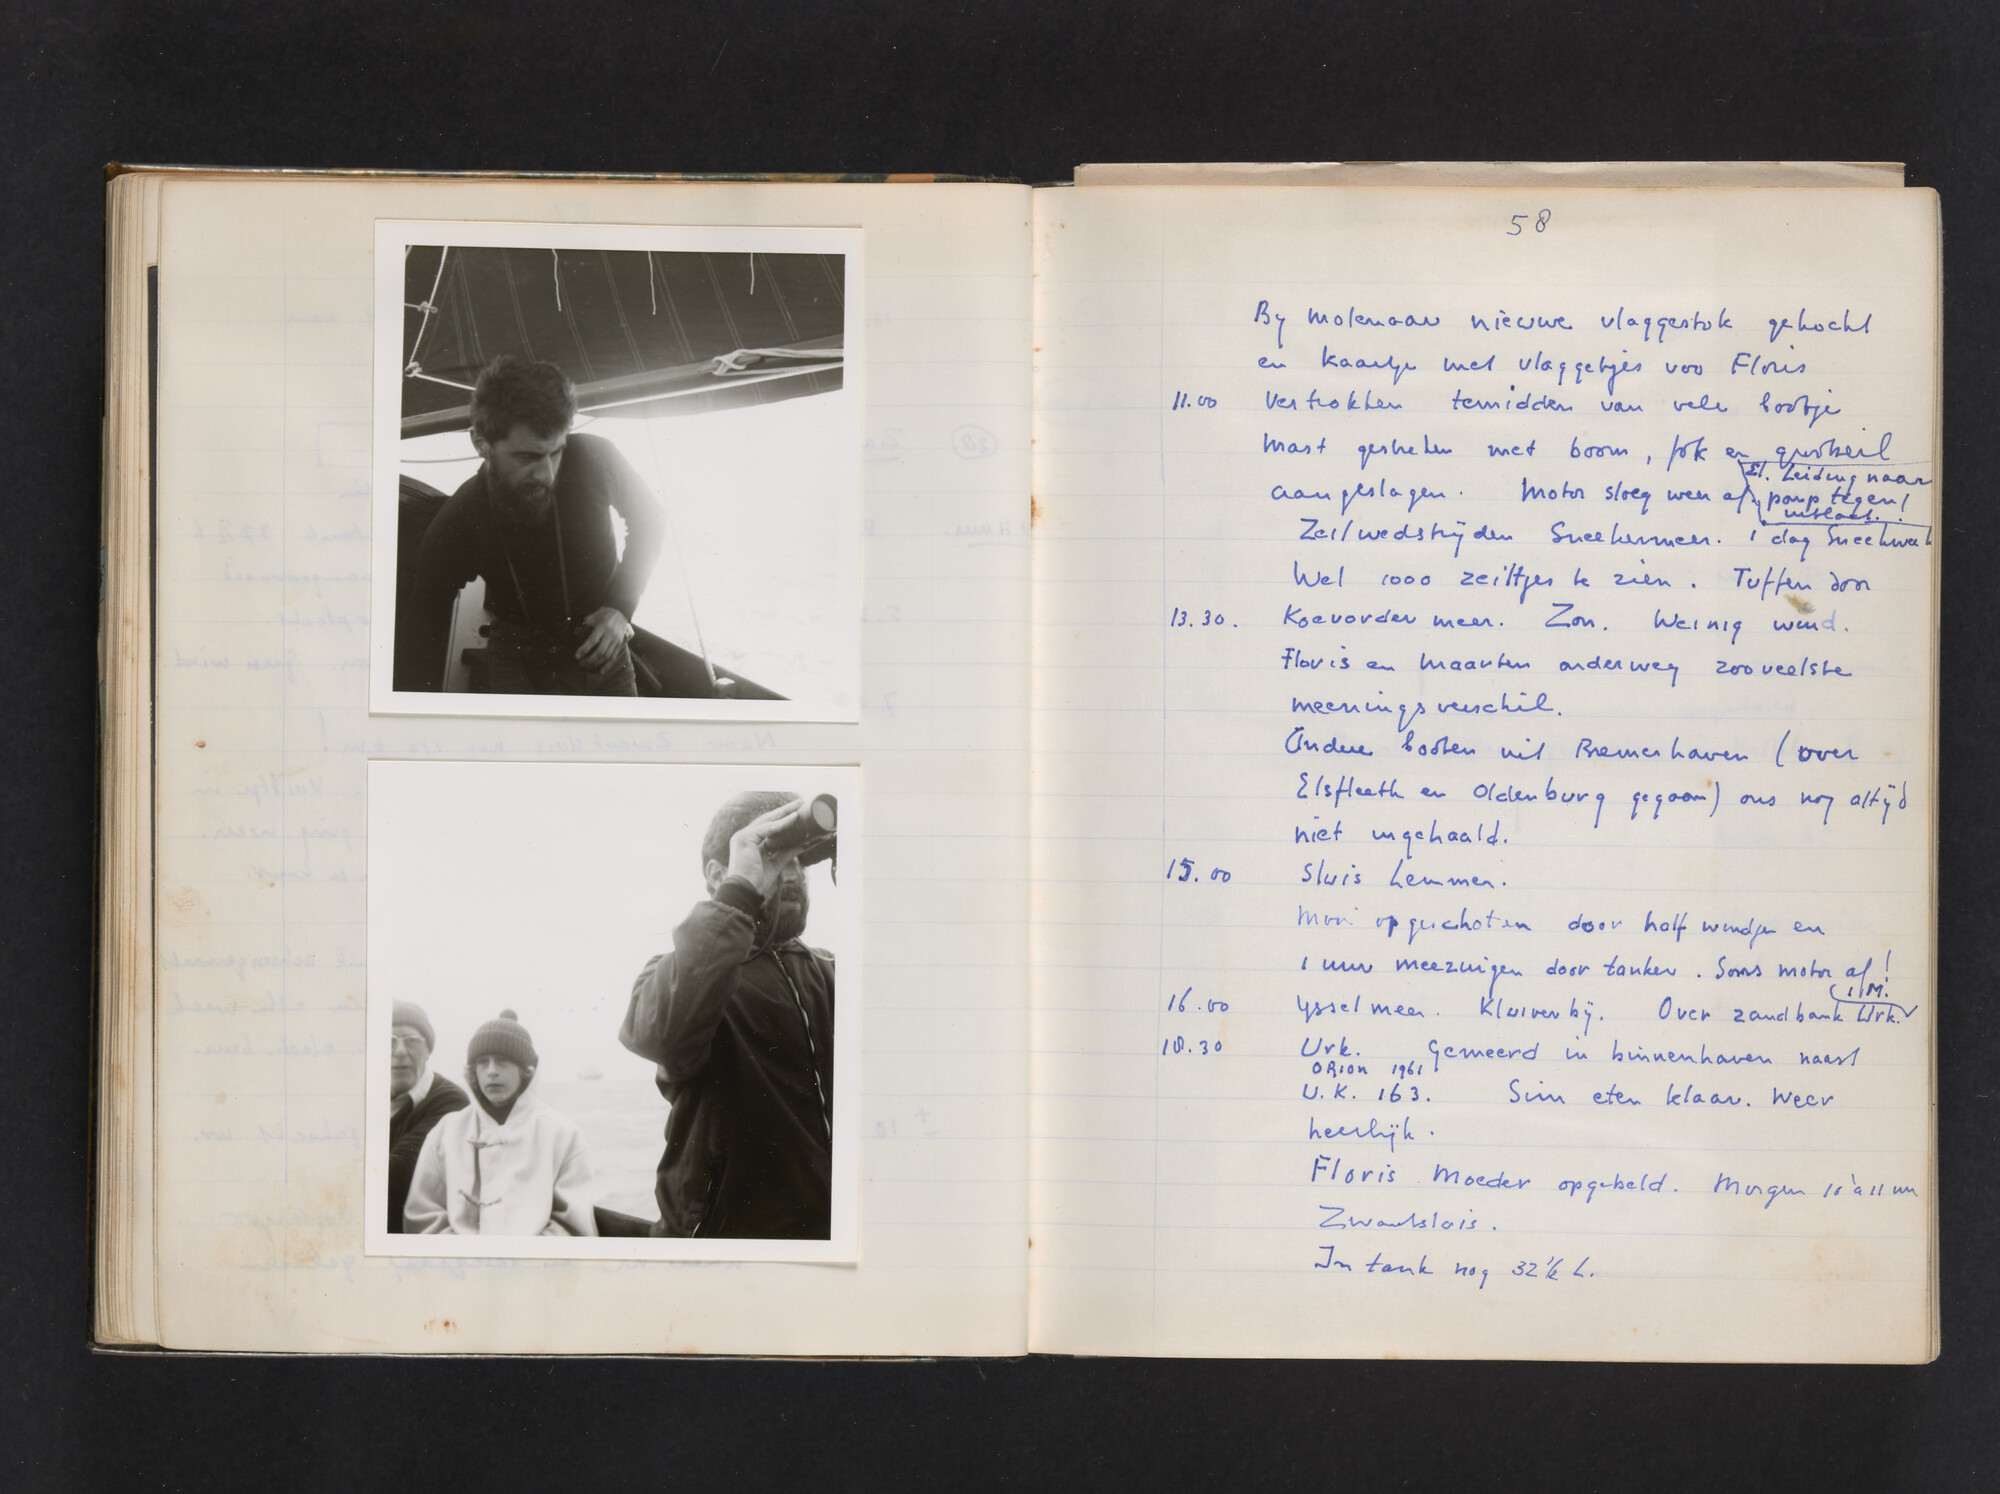 58
By Molenaar nieuwe vlaggestok gekocht
en kaartje met vlaggetjes voo Floris
11.00 Vertrokken temidden van vele bootje
Mast gestreken met boom, fok en
aangeslagen. Motor sloeg weer af.
El. Leiding naar
pomp tegen
Zeilwedstrijden Sneekermeer. 1 dag Sneekweek
Wel 1000 zeiltjes te zien. Tuffen door
13.30. Koevorder meer. Zon. Weinig wind.
Floris en Maarten onderweg zooveelste
meeningsverschil.
Andere booten uit Bremerhaven (over
Elsfleeth en Oldenburg gegaan) ons nog altijd
niet ingehaald.
15.00 Sluis Lemmer.
Mooi opgeschoten door half windje en
1 uur meezuigen door tanker. Soms motor af!
1 M.
16.00 Ysselmeer. Kluiver bij. Over zandbank Urk.
18.30 Urk. Gemeerd in binnenhaven naast
ORION 1961
U.K. 163. Siem eten klaar. Weer
heerlijk.
Floris Moeder opgebeld. Morgen 10 à 11 uur
Zwartsluis.
In tank nog 32½ L.